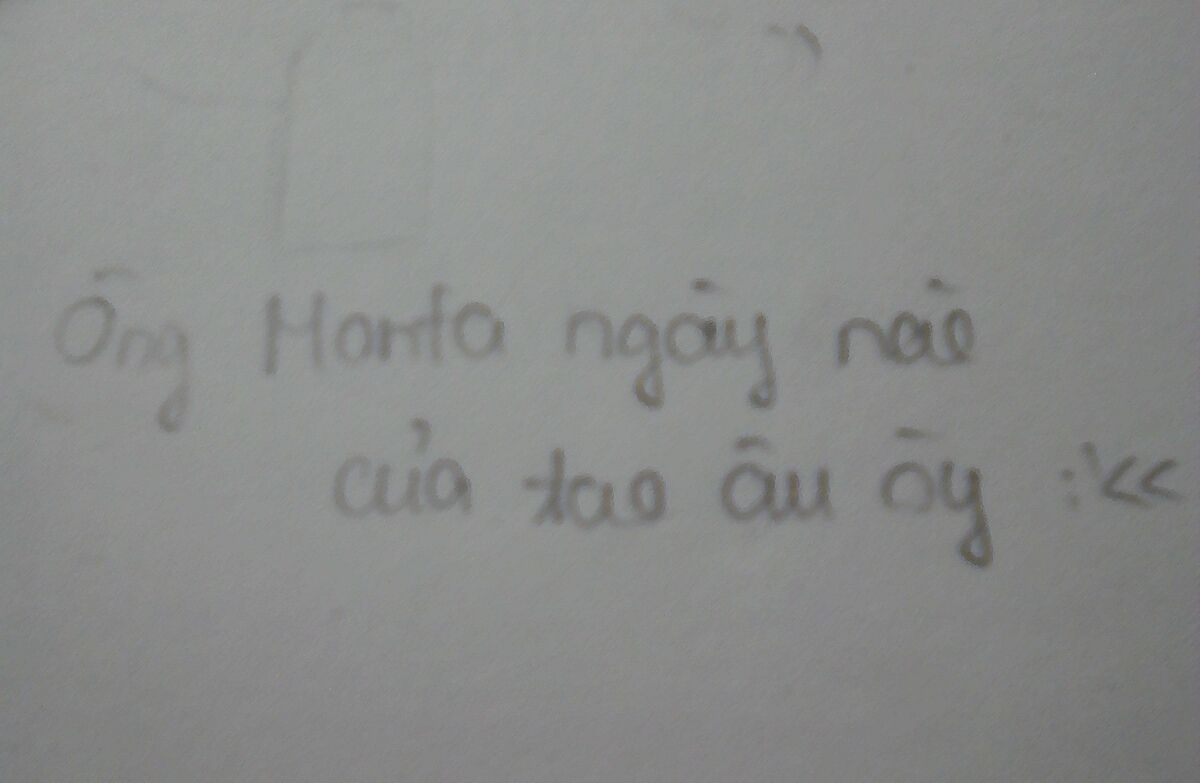 Ông Manta ngày nào
của tao âu ōy :'<<